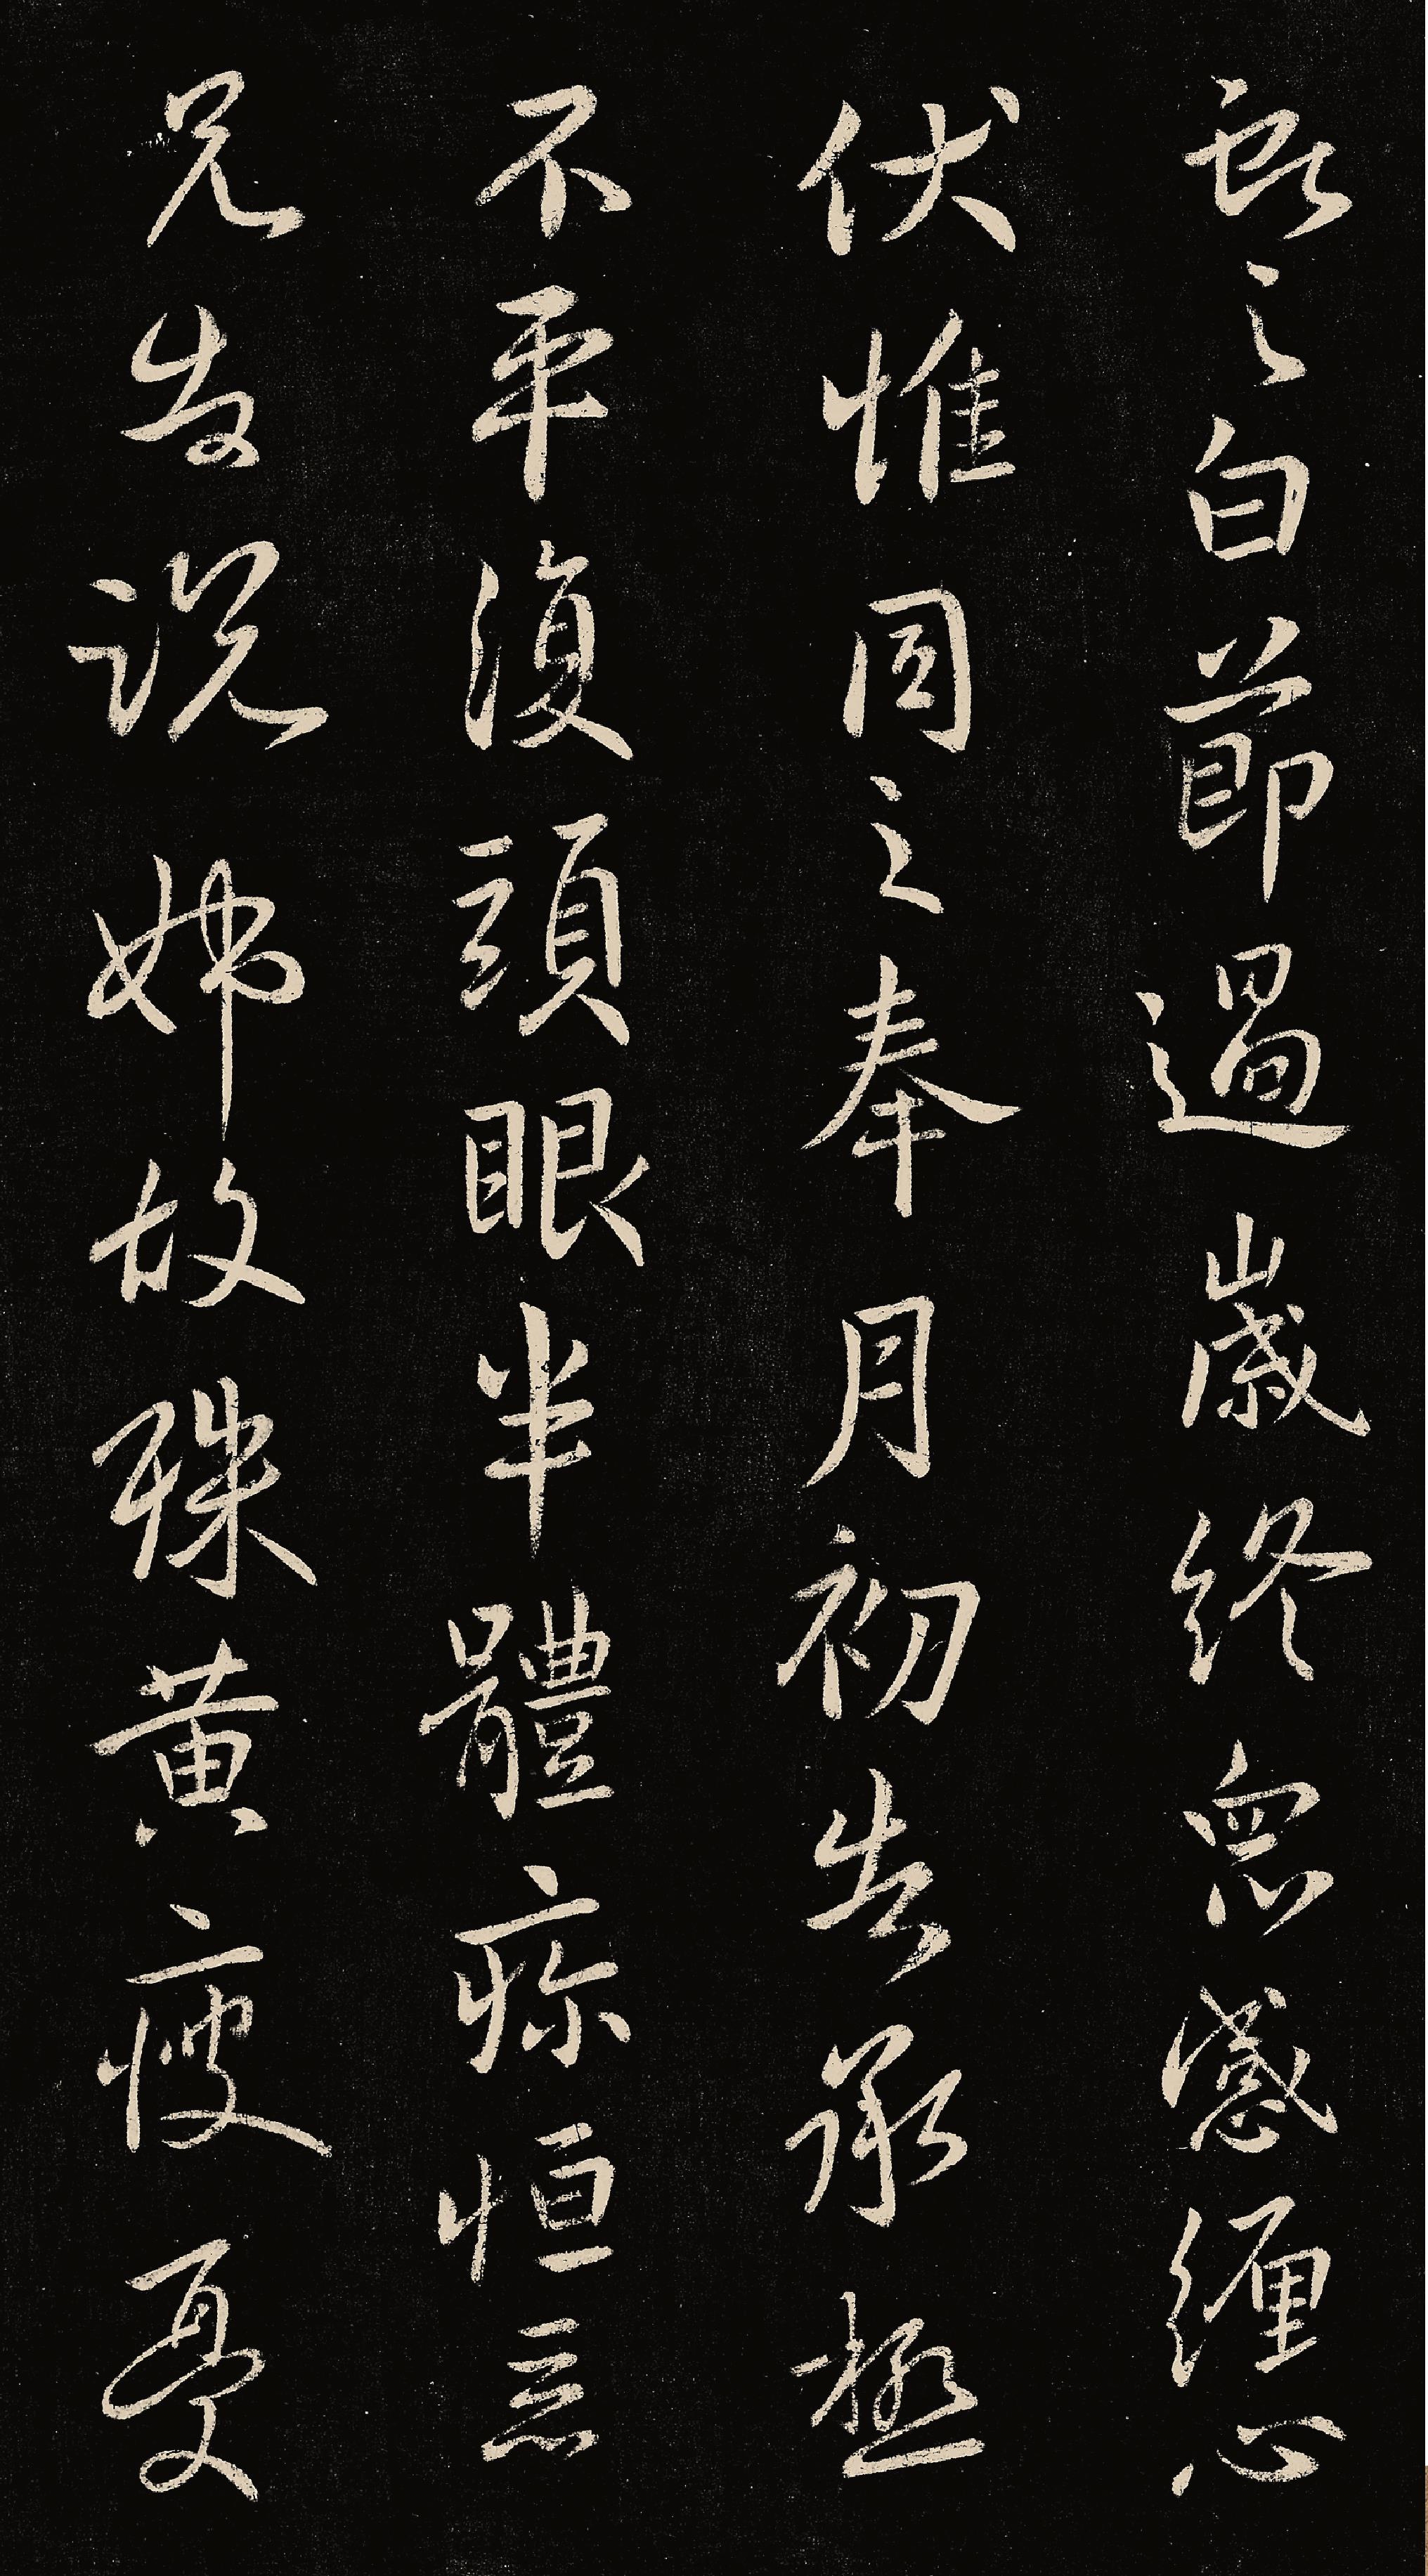 獻之白節過歲終衆感纏心
伏惟同之奉月初告承極
不平復頭眼半體疼恒惡
兄告說姊故殊黃瘦憂